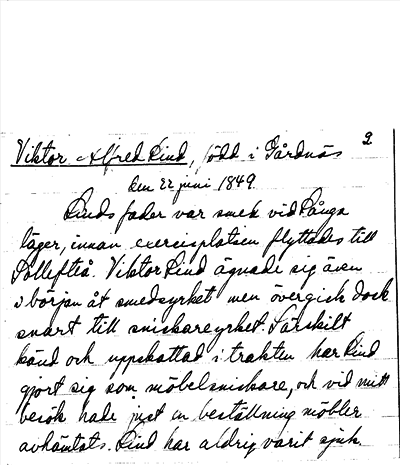 2
Viktor Alfred Lind, född i Gårdnäs
den 22 juni 1849.
Linds fader var smed vid Långa
läger, innan exercisplatsen flyttades till
Sollefteå. Viktor Lind ägnade sig även
i början åt smedsyrket men övergick dock
snart till snickareyrket. Särskilt
känd och uppskattad i trakten har Lind
gjort sig som möbelsnickare, och vid mitt
besök hade just en beställning möbler
avhämtats. Lind har aldrig varit sjuk